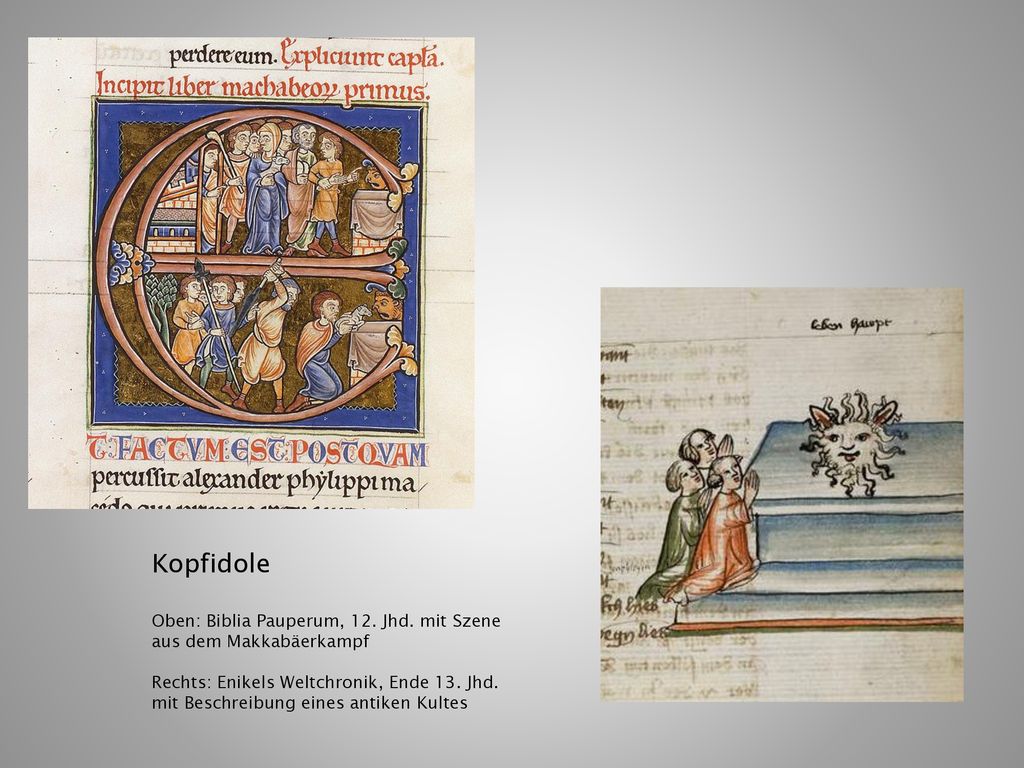 perdere eum. Expliciunt capl̃a.
Incipit liber machabeoꝝ primus.
T. FACTVM: EST: POSTQVAM
percussit alexander phylippi ma
Kopfidole
Oben: Biblia Pauperum, 12. Jhd. mit Szene
aus dem Makkabäerkampf
Rechts: Enikels Weltchronik, Ende 13. Jhd.
mit Beschreibung eines antiken Kultes
haupt